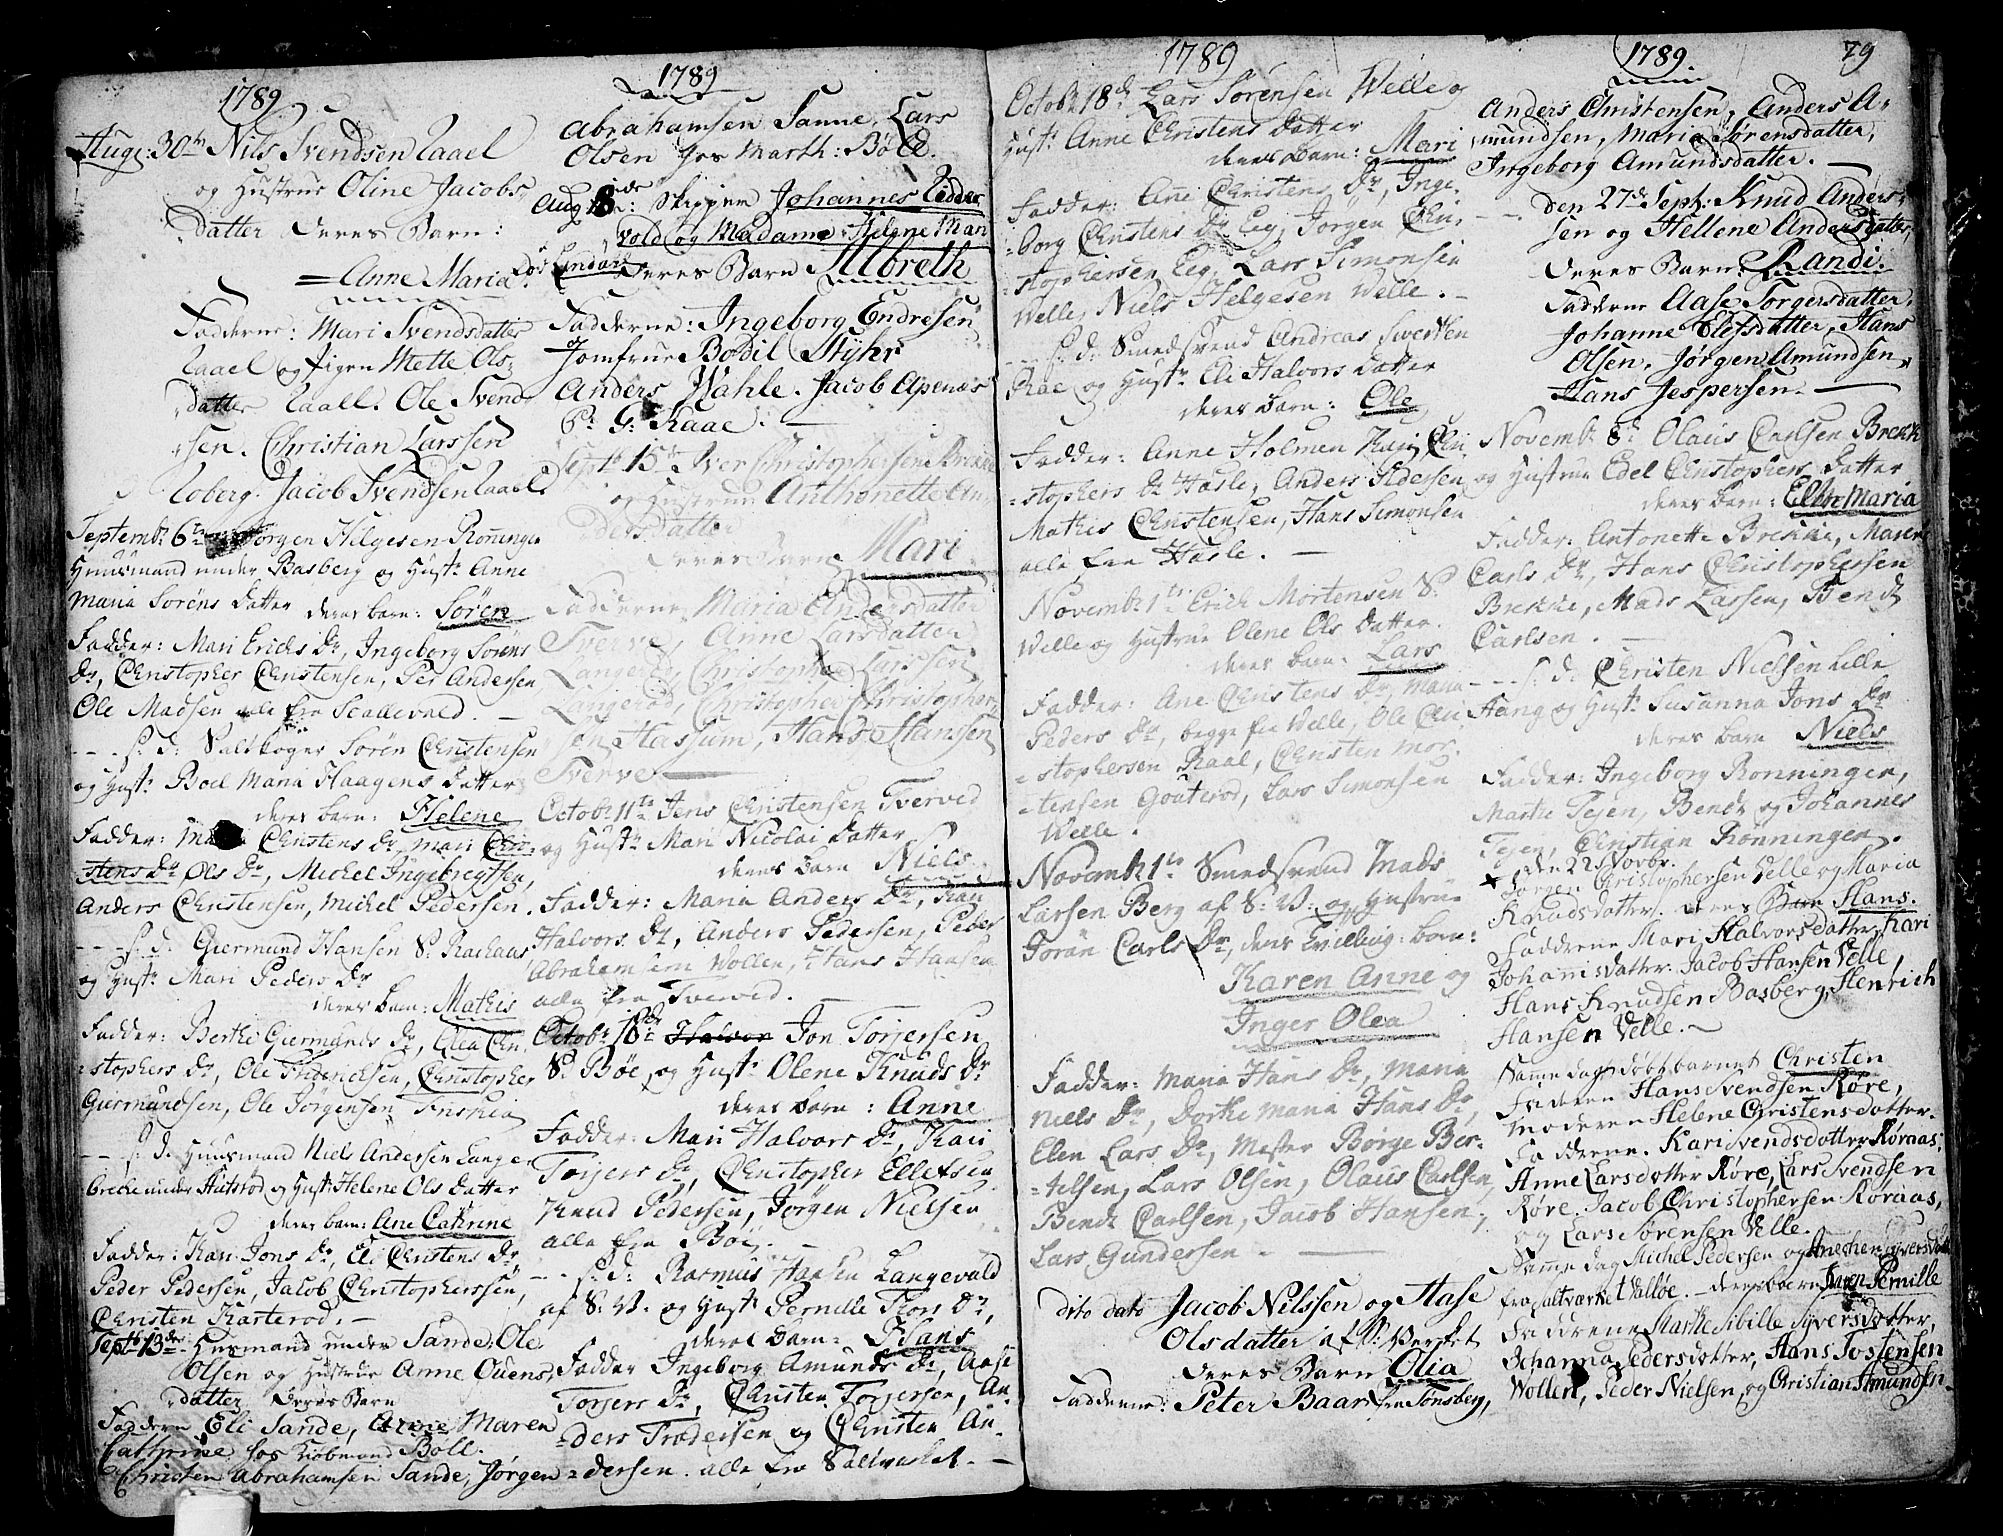 1789
Aug: 30te Nils Svendsen Raael
og Hustrue Oline Jacobs
datter Deres Barn:
Anne Maria
Fadderne: Mari Svendsdatter
Raael og Pigen Mette Ols
datter Raael. Ole Svend
sen. Christian Larssen
Roberg. Jacob Svendsen Raael
Septemb: 6te Jørgen Hilgesen Rønningen
Huusmand under Basberg og Hust: Anne
Maria Sørens datter deres barn: Søren
Fadder: Mari Erichs Dr, Ingeborg Sørens
Dr, Christopher Christensen, Per Andersen
Ole Madsen alle fra Scallevald.
- - - s: d: Saltkoger Søren Christensen
og Hust: Boel Maria Haagens datter
deres barn: Helene
Fadder: Christens Dr, Mari Chri-
stens Dr, Ols Dr, Michel Ingebregtsen,
Anders Christensen, Michel Pedersen.
- - - s: d: Giermund Hansen S: Rachaas
og Hust: Mari Peders Dr
deres barn: Mathis
Fadder: Berthe Giermunds Dr, Elea Chri-
stophers Dr, Ole Friderichsen, Christopher
Giermundsen, Ole Jørgensen
- - s: d: Huusmand Niels Andersen Lange
brecke under Slutsrød og Hust: Helene Ols datter
deres barn: Ane Cathrine
Fadder: Kari Jons Dr, Eli Christens Dr
Peder Pedersen, Jacob Christophersen,
Christen Karterod.
Septb 13de Husmand under Sande, Ole
Olsen og Hustrue Anne Ouens
datter Deres Barn
Faddern Eli Sande, Anne Maren
Cathrine hos Kiøbmand Boll.
Christen Abrahamsen Sande, Jørgen
1789
Abrahamsen Sanne, Lars
Olsen hos Marth: Bøld.
Aug: Skipper Johannes Lidder
vold og Madame Helene Mari
Deres Barn Albreth
Fadderne: Ingeborg Endresen
Jomfrue Bodil Styhr
Anders Wahle. Jacob Apenæs
P: G: Kaae.
Septb 15de Iver Christophersen Brekke
og Hustrue Anthonette An
dersdatter
Deres Barn Mari
Fadderne, Maria Andersdatter
Tverve, Anne Larsdatter
Langerød, Christopher Larssen
Langerød, Christopher Christopher
sen Hassum, Hans Hansen
Tverve
Octobr 11te Jens Christensen Tverved
og Hust: Mari Nicolai datter
deres barn Niels
Fadder: Maria Anders Dr, Kari
Halvors Dr, Anders Pedersen, Peder
Abrahamsen Wollen, Hans Hansen
alle fra Tverved.
Octob: 18de Halvor Jon Torjersen
S: Bøe og Hust: Olene Knuds Dr
deres barn: Anne
Fadder: Mari Halvors Dr, Kari
Torjers Dr, Christopher Ellefsen
Knud Pedersen, Jørgen Nielsen
alle fra Bøe.
- - s: d: Rasmus Hansen Langevald
af S: V. og Hust: Pernille Thors Dr,
deres barn: Hans
Fadder Ingeborg Amunds Dr, Aase
Torjers Dr, Christen Torjersen, An-
ders Trædersen og Christen An-
dersen. alle fra Saltverket.
1789
Octob: 18de Lars Sørensen Welle og
Hust: Anne Christens datter
deres barn: Mari
Fadder: Ane Christens Dr, Inge-
borg Christens Dr Eeg, Jørgen Chri-
stophersen Eeg, Lars Simonsen
Welle, Niels Helgesen Welle.
- - - s: d: Smedsvend Andreas Swerthen
Rae og Hust: Eli Halvors datter
deres barn: Ole
Fadder: Anne Holmen Kari Chri-
stophers Dr Hasle, Anders Pedersen,
Mathis Christensen, Hans Simonsen
alle fra Hasle.
Novemb: 1te Erich Mortensen S:
Welle og Hustrue Olene Ols datter.
deres barn: Lars
Fadder: Ane Christens Dr, Maria
Peders Dr, begge fra Welle, Ole Chri
stophersen Raal, Christen Mor-
tensen Gouterod, Lars Simonsen
Welle.
Novemb: 1te Smedsvend Mads
Larsen Berg af S: V: og Hustrue
Joran Carls Dr, deres Tvilling: barn:
Karen Anne og
Inger Olea
Fadder: Maria Hans Dr, Maria
Niels Dr, Dorthe Maria Hans Dr,
Elen Lars Dr, Mester Børge Ber-
telsen, Lars Olsen, Olaus Carlsen,
Bendt Carlsen, Jacob Hansen,
Lars Gundersen.
dito dato Jacob Nilssen og Aase
Olsdatter af S: Verket
deres Barn Olia
Fadderne: Peter Baar fra Tønsberg,
1789. 79
Anders Christensen, Anders A-
mundsen, Maria Sørensdatter,
Ingeborg Amundsdatter.
- - . den 27de Sept: Knud Anders
sen og Hellene Andersdatter,
Deres Barn: Randi.
Fadderne Aase Torgersdatter,
Johanne Elefsdatter, Hans
Olsen, Jørgen Amundsen
Hans Jespersen.
Novemb: 8de Olaus Carlsen Brekk
og Hustrue Edel Christophers datter
deres barn: Ellen Maria
Fadder: Antonette Brekke, Maren
Carls Dr, Hans Christophersen
Brekke, Mads Larsen, Bendt
Carlsen.
- - - s: d: Christen Nielsen Lille
Hang og Hust: Susanna Jons Dr
deres barn Niels
Fadder: Ingeborg Rønningen,
Marthe Tejen, Bendt og Johannes
Tejen, Christian Rønningen.
den 22 Novbr.
Jørgen Christophersen Velle og Maria
Knudsdatter. deres Barn Hans.
Fadderne Mari Halvorsdatter, Kari
Johannisdatter. Jacob Hansen Velle,
Hans Knudsen Basberg, Henrich
Hansen Velle.
Samme dag døbt barnet Christen
Faderen Hans Svendsen Røre,
Moderen Helene Christensdatter.
Fadderne. Kari Svendsdatter Røraas,
Anne Larsdatter Røre, Lars Svendsen
Røre. Jacob Christophersen Røraas,
og Lars Sørensen Velle.
Samme dag Michel Pedersen og Anechen Syversdatter
fra Saltværket Valløe. deres barn Iwen Pernille
Faddrene Marthe Sibille Syversdatter,
Johanna Pedersdatter, Hans Tostensen
Wollen, Peder Nielsen, og Christian Amundsen.